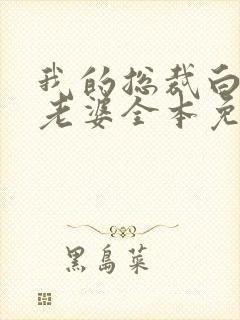 我的总裁白
老婆全本免
黑岛菜